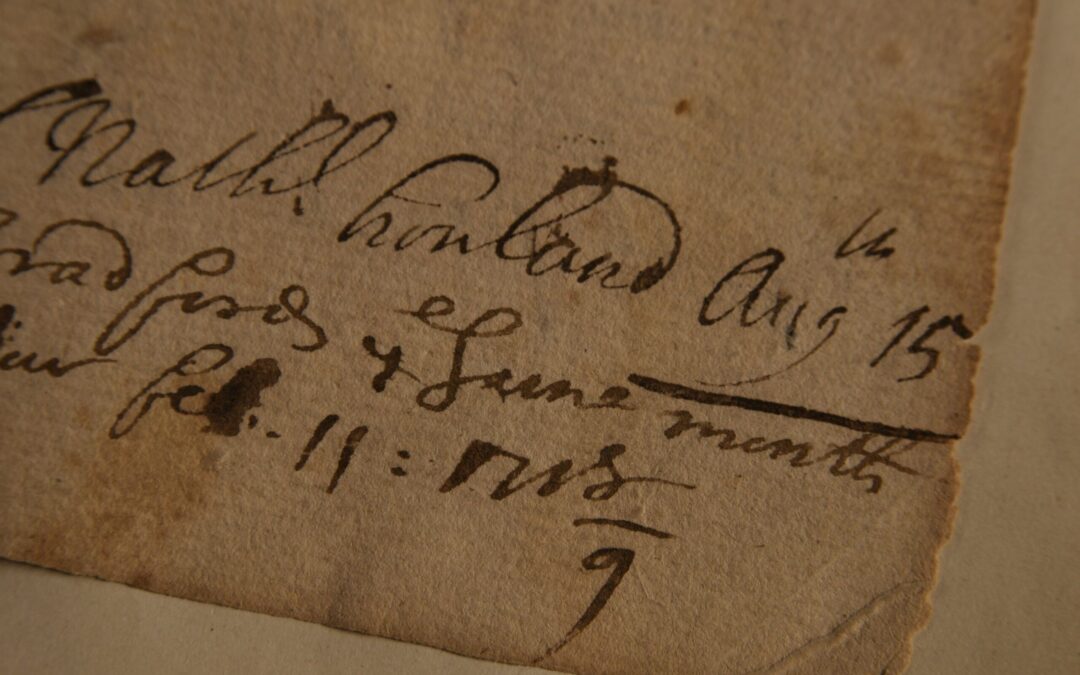 Nathll howland Aug 15th
radfords ye same month
feb. 11: 1718
9